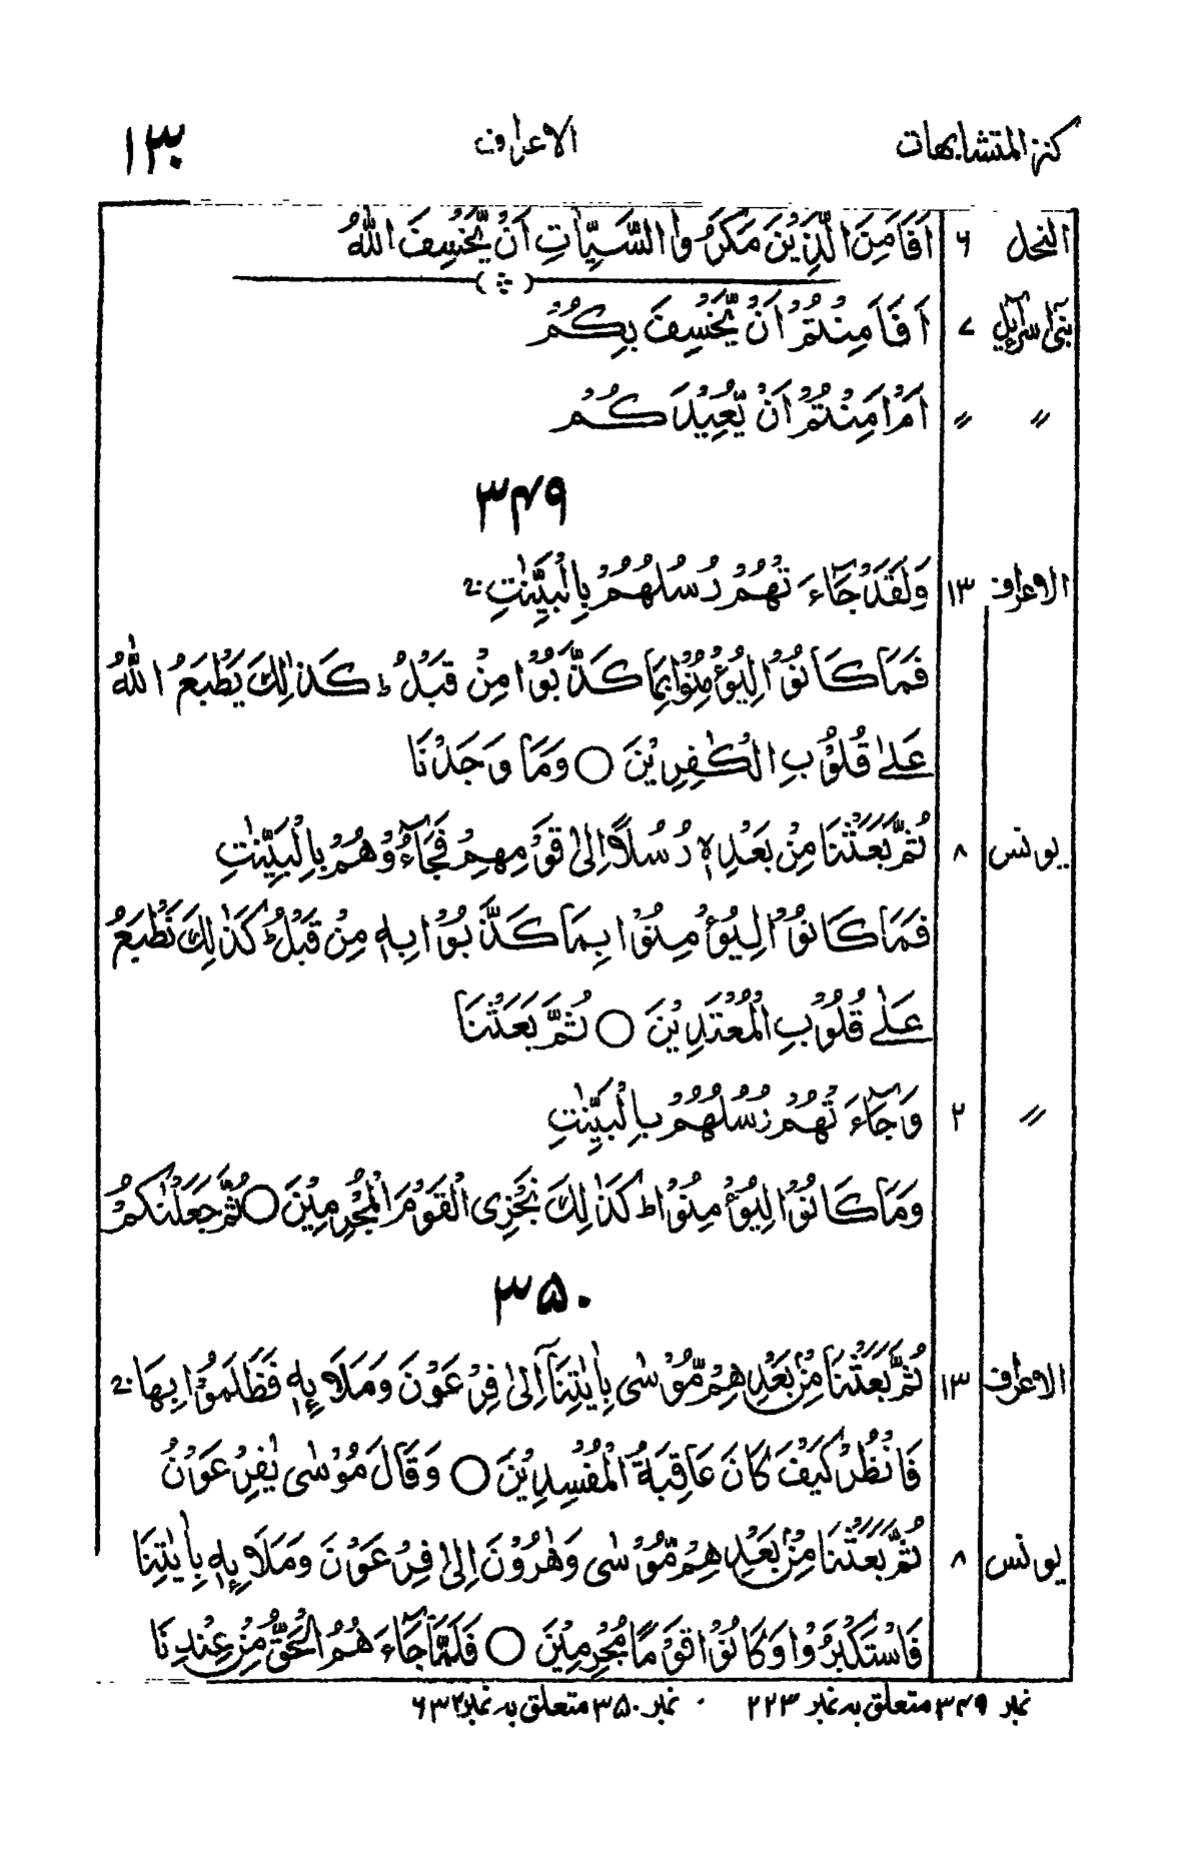 كنز المتشابهات الاعراف ۱۳۰
النحل ۶ اَفَاَمِنَ الَّذِيْنَ مَكَرُوا السَّيِّاٰتِ اَنْ يَّخْسِفَ اللّٰهُ
بنی اسرآءیل ۷ اَفَاَمِنْتُمْ اَنْ يَّخْسِفَ بِكُمْ
〃 〃 اَمْ اَمِنْتُمْ اَنْ يُّعِيْدَكُمْ
۳۴۹
الاعراف ۱۳ وَلَقَدْ جَآءَتْهُمْ رُسُلُهُمْ بِالْبَيِّنٰتِ ۚ
فَمَا كَانُوْا لِيُؤْمِنُوْا بِمَا كَذَّبُوْا مِنْ قَبْلُ ؕ كَذٰلِكَ يَطْبَعُ اللّٰهُ
عَلٰى قُلُوْبِ الْكٰفِرِيْنَ ○ وَمَا وَجَدْنَا
يونس ۸ ثُمَّ بَعَثْنَا مِنْۢ بَعْدِهٖ رُسُلًا اِلٰى قَوْمِهِمْ فَجَآءُوْهُمْ بِالْبَيِّنٰتِ
فَمَا كَانُوْا لِيُؤْمِنُوْا بِمَا كَذَّبُوْا بِهٖ مِنْ قَبْلُ ؕ كَذٰلِكَ نَطْبَعُ
عَلٰى قُلُوْبِ الْمُعْتَدِيْنَ ○ ثُمَّ بَعَثْنَا
〃 ۲ وَجَآءَتْهُمْ رُسُلُهُمْ بِالْبَيِّنٰتِ
وَمَا كَانُوْا لِيُؤْمِنُوْا ؕ كَذٰلِكَ نَجْزِى الْقَوْمَ الْمُجْرِمِيْنَ ○ ثُمَّ جَعَلْنٰكُمْ
۳۵۰
الاعراف ۱۳ ثُمَّ بَعَثْنَا مِنْۢ بَعْدِهِمْ مُّوْسٰى بِاٰيٰتِنَآ اِلٰى فِرْعَوْنَ وَمَلَا۟ئِهٖ فَظَلَمُوْا بِهَا ۚ
فَانْظُرْ كَيْفَ كَانَ عَاقِبَةُ الْمُفْسِدِيْنَ ○ وَقَالَ مُوْسٰى يٰفِرْعَوْنُ
يونس ۸ ثُمَّ بَعَثْنَا مِنْۢ بَعْدِهِمْ مُّوْسٰى وَهٰرُوْنَ اِلٰى فِرْعَوْنَ وَمَلَا۟ئِهٖ بِاٰيٰتِنَا
فَاسْتَكْبَرُوْا وَكَانُوْا قَوْمًا مُّجْرِمِيْنَ ○ فَلَمَّا جَآءَهُمُ الْحَقُّ مِنْ عِنْدِنَا
نمبر ۳۴۹ متعلق بہ نمبر ۲۲۳ · نمبر ۳۵۰ متعلق بہ نمبر ۶۳۲